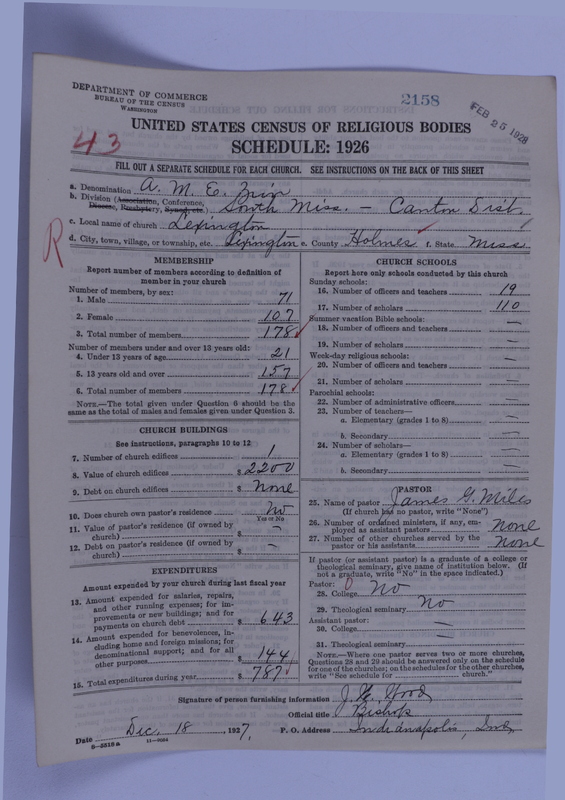 DEPARTMENT OF COMMERCE
BUREAU OF THE CENSUS
WASHINGTON
2158
FEB 25 1928
43
UNITED STATES CENSUS OF RELIGIOUS BODIES
SCHEDULE: 1926
FILL OUT A SEPARATE SCHEDULE FOR EACH CHURCH. SEE INSTRUCTIONS ON THE BACK OF THIS SHEET
a. Denomination A. M. E. Zion
b. Division (Association, Conference, Diocese, Presbytery, Synod, etc.) South Miss. – Canton Dist.
c. Local name of church Lexington
R
d. City, town, village, or township, etc. Lexington e. County Holmes f. State Miss
MEMBERSHIP
Report number of members according to definition of
member in your church
Number of members, by sex:
1. Male 71
2. Female 107
3. Total number of members 178
Number of members under and over 13 years old:
4. Under 13 years of age 21
5. 13 years old and over 157
6. Total number of members 178
NOTE.—The total given under Question 6 should be the
same as the total of males and females given under Question 3.
CHURCH BUILDINGS
See instructions, paragraphs 10 to 12
7. Number of church edifices 1
8. Value of church edifices $ 2200
9. Debt on church edifices $ none
10. Does church own pastor's residence? no
Yes or No
11. Value of pastor's residence (if owned by
church) $ —
12. Debt on pastor's residence (if owned by
church) $ —
EXPENDITURES
Amount expended by your church during last fiscal year
13. Amount expended for salaries, repairs,
and other running expenses; for im-
provements or new buildings; and for
payments on church debt $ 643
14. Amount expended for benevolences, in-
cluding home and foreign missions; for
denominational support; and for all
other purposes $ 144
15. Total expenditures during year $ 787
CHURCH SCHOOLS
Report here only schools conducted by this church
Sunday schools:
16. Number of officers and teachers 19
17. Number of scholars 110
Summer vacation Bible schools:
18. Number of officers and teachers —
19. Number of scholars —
Week-day religious schools:
20. Number of officers and teachers —
21. Number of scholars —
Parochial schools:
22. Number of administrative officers —
23. Number of teachers—
a. Elementary (grades 1 to 8) —
b. Secondary —
24. Number of scholars—
a. Elementary (grades 1 to 8) —
b. Secondary —
PASTOR
25. Name of pastor James G. Miles
(If church has no pastor, write "None")
26. Number of ordained ministers, if any, em-
ployed as assistant pastors none
27. Number of other churches served by the
pastor or his assistants None
If pastor (or assistant pastor) is a graduate of a college or
theological seminary, give name of institution below. (If
not a graduate, write "No" in the space indicated.)
Pastor:
28. College No
29. Theological seminary No
Assistant pastor:
30. College —
31. Theological seminary —
NOTE.—Where one pastor serves two or more churches,
Questions 28 and 29 should be answered only on the schedule
for one of the churches; on the schedules for the other churches,
write "See schedule for church."
Signature of person furnishing information J. W. Wood
Official title Bishop
Date Dec. 18, 1927. P. O. Address Indianapolis, Ind.
6-3818a 11-9094